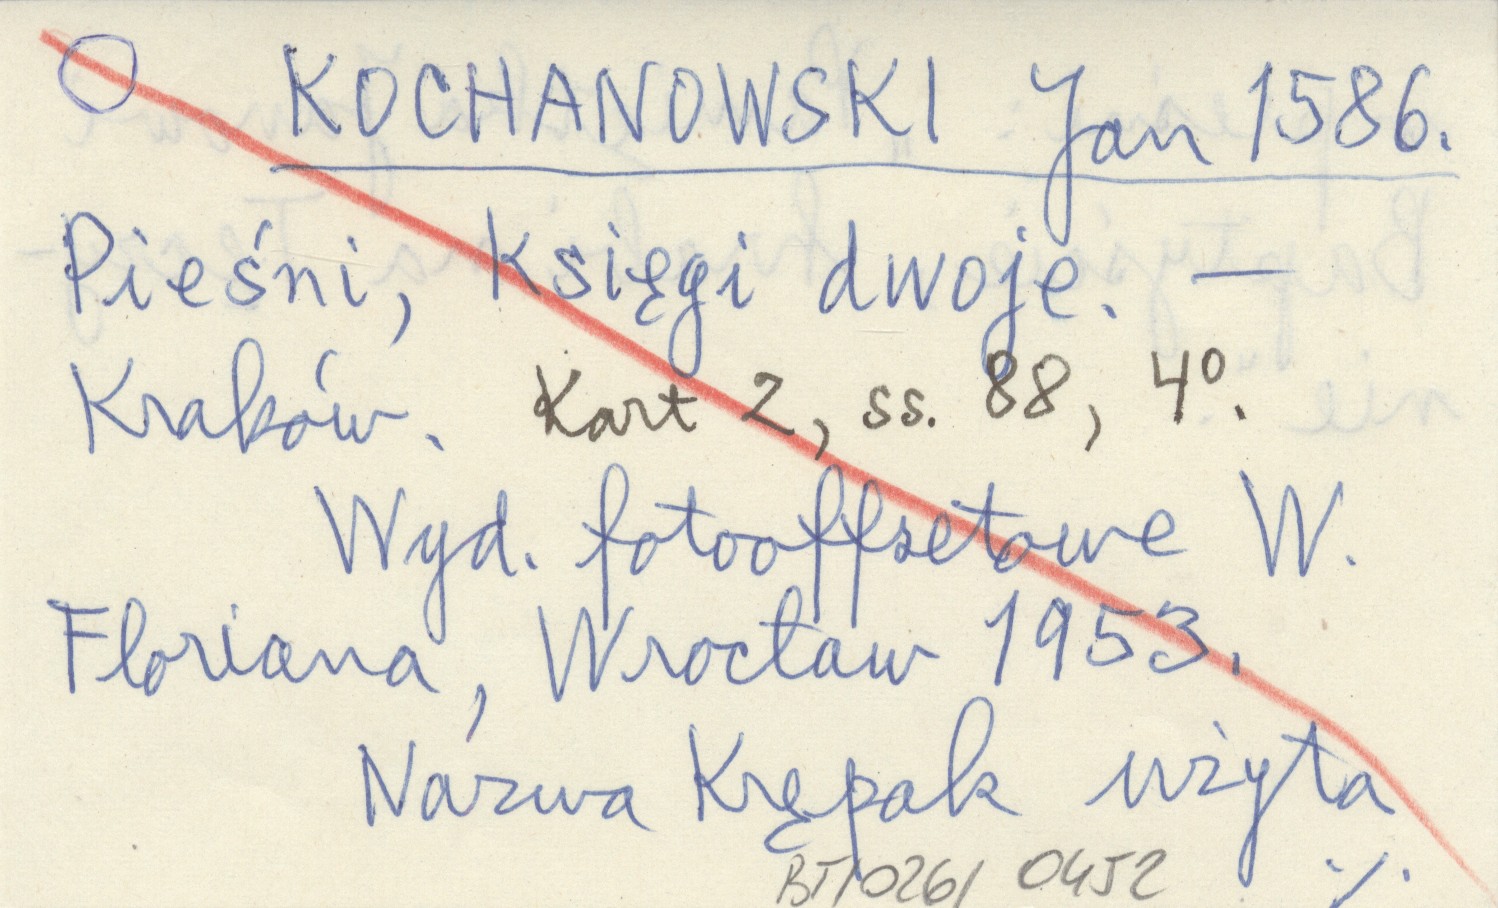 KOCHANOWSKI Jan 1586.
Pieśni, Księgi dwoje. —
Kraków. Kart 2, ss. 88, 4⁰.
Wyd. fotooffsetowe W.
Floriana, Wrocław 1953.
Nazwa Krępak użyta
BT/026/ 0452 ./.